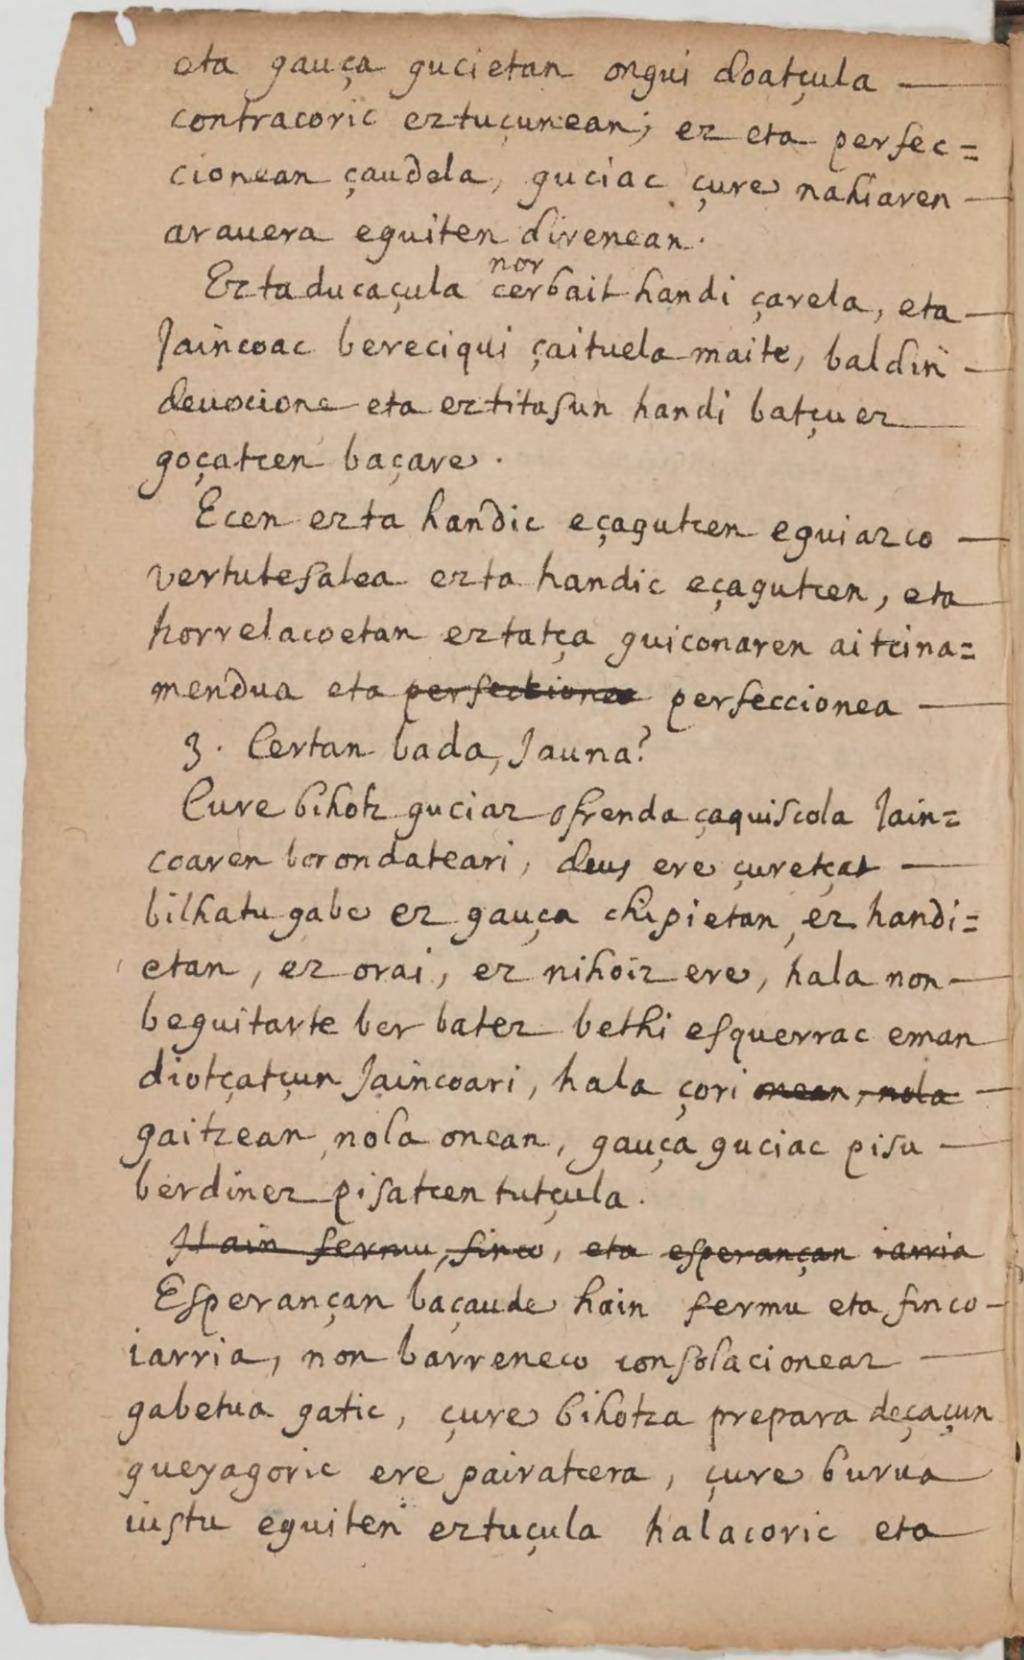 eta gauça gucietan ongui doatçula —
contracoric eztuçunean; ez eta perfec=
cionean çaudela, guciac çure nahiaren —
arauera eguiten direnean.
nor
Eztaducaçula cerbait handi çarela, eta —
Jaincoac bereciqui çaituela maite, baldin —
deuocione eta eztitasun handi batçuez —
goçatcen baçare.
Ecen ezta handic eçagutcen eguiazco —
vertutesalea ezta handic eçagutcen, eta
horrelacoetan eztatça guiçonaren aitcina=
mendua eta perfectionea perfeccionea —
3. Certan bada, Jauna?
Çure bihotz guciaz ofrenda çaquiscola Jain=
coaren borondateari, deus ere çuretçat —
bilhatu gabe ez gauça chipietan, ez handi=
etan, ez orai, ez nihoiz ere, hala non —
beguitarte ber batez bethi esquerrac eman
diotçatçun Jaincoari, hala çori onean, nola —
gaitzean nola onean, gauça guciac pisu —
berdinez pisatcen tutçula.
Hain fermu, finco, eta esperançan iarria
Esperançan baçaude hain fermu eta finco —
iarria, non barreneco consolacioneaz —
gabetua gatic, çure bihotza prepara deçaçun
gueyagoric ere pairatcera, çure burua
iustu eguiten eztuçula halacoric eta